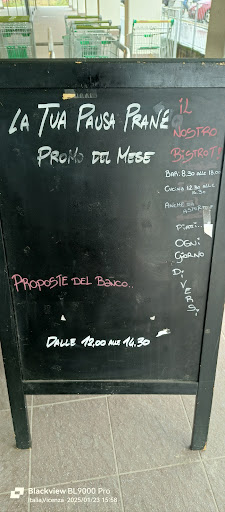 La Tua Pausa Pranzo
Promo del Mese
Proposte del Banco..
Dalle 12,00 alle 14.30
il
nostro
Bistrot!
Bar: 8.30 alle
Cucina 12.30 alle
Anche da
asporto
Piatti...
ogni
giorno
Diversi
Blackview BL9000 Pro
Italia,Vicenza 2025/09/23 15:58